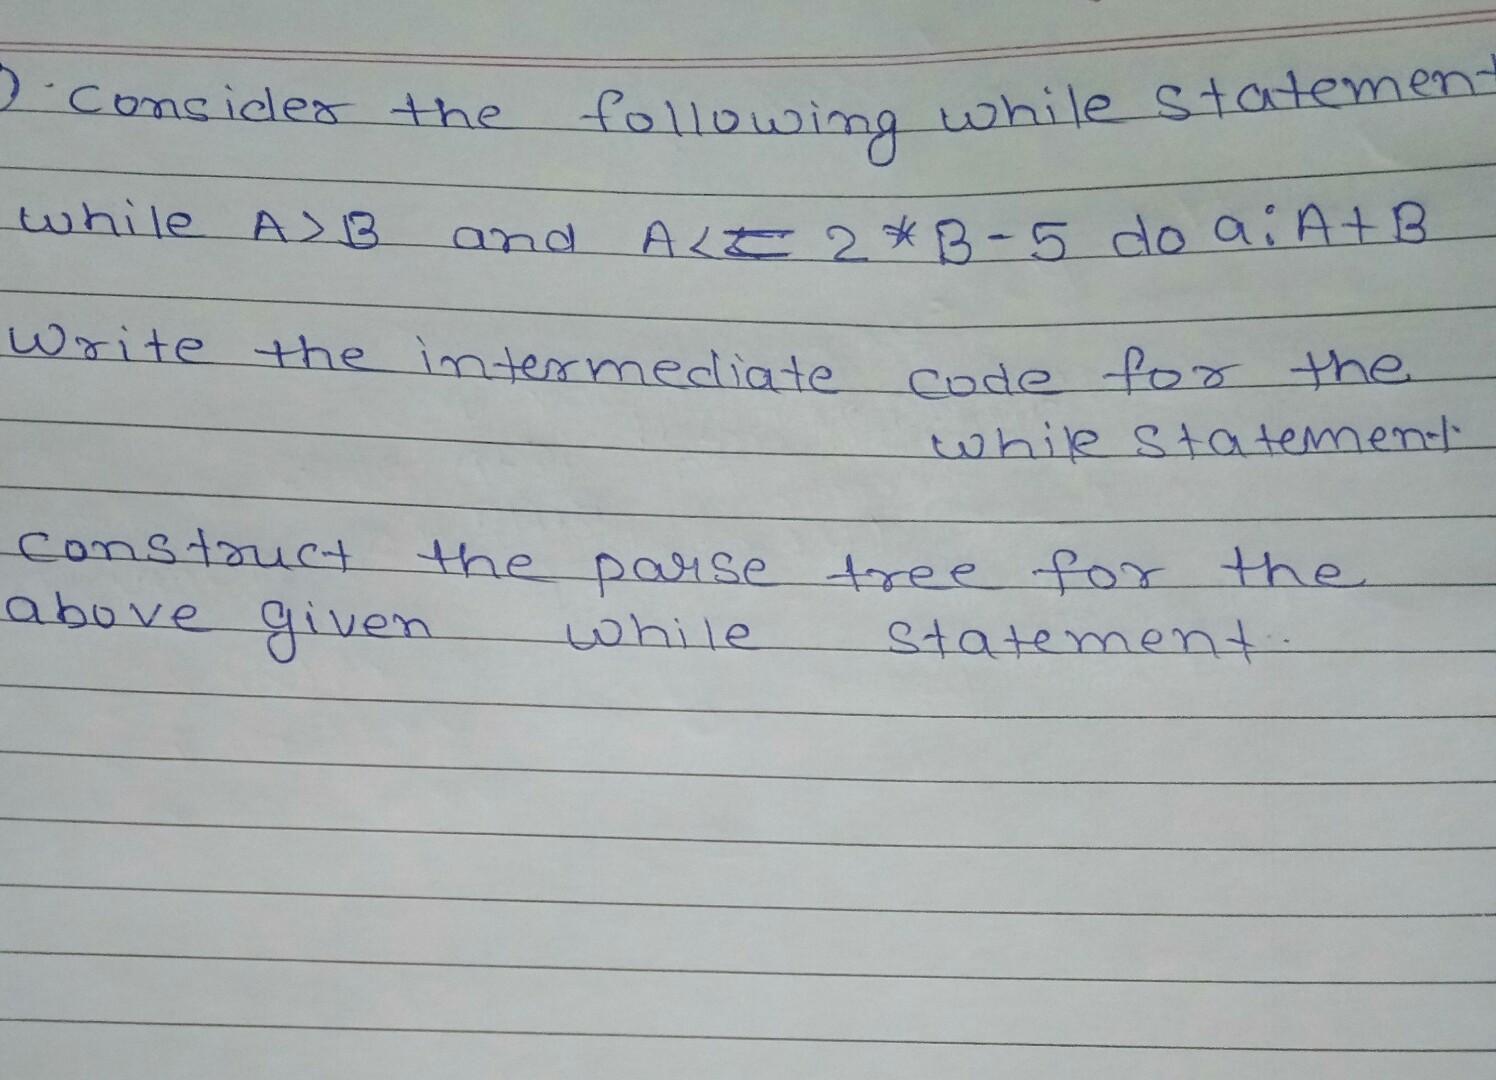 consider the following while statement
while A>B and A<= 2*B-5 do a: A+B
write the intermediate code for the
while statement
construct the parse tree for the
above given while statement.